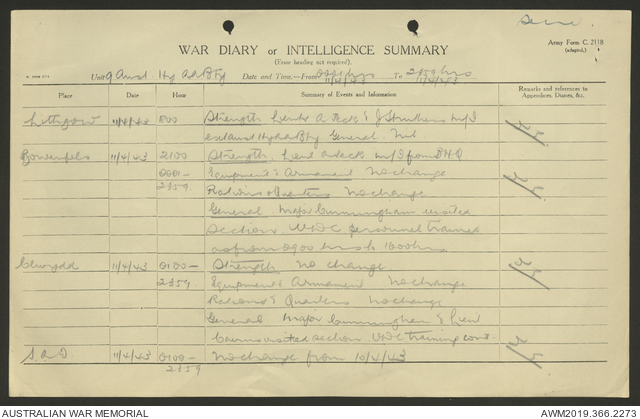 WAR DIARY or INTELLIGENCE SUMMARY
(Erase heading not required).
Army Form C. 2118
(adapted.)
Unit 9 Aust Hy AA Bty Date and Time—From 0001 hrs 11/4/43 To 2359 hrs 11/4/43
Place Date Hour Summary of Events and Information Remarks and references to Appendices, Diaries, &c.
Lithgow 11/4/43 Strength Lieuts A & J Struthers
Hy AA Bty General. Nil
Bowenfels 11/4/43 2100 Strength. Lieut from BHQ
0001- Equipment & Armament No change
2359 Rations & Quarters No change
General Major Cunningham visited
section. VDC personnel trained
as from 0900 hrs to 1600 hrs
Clwydd 11/4/43 0100- Strength No change
2359 Equipment & Armament No change
Rations & Quarters No change
General Major Cunningham & Lieut
Cairns visited section VDC training cont.
11/4/43 0100- No change from 10/4/43
2359
AUSTRALIAN WAR MEMORIAL
AWM2019.366.2273